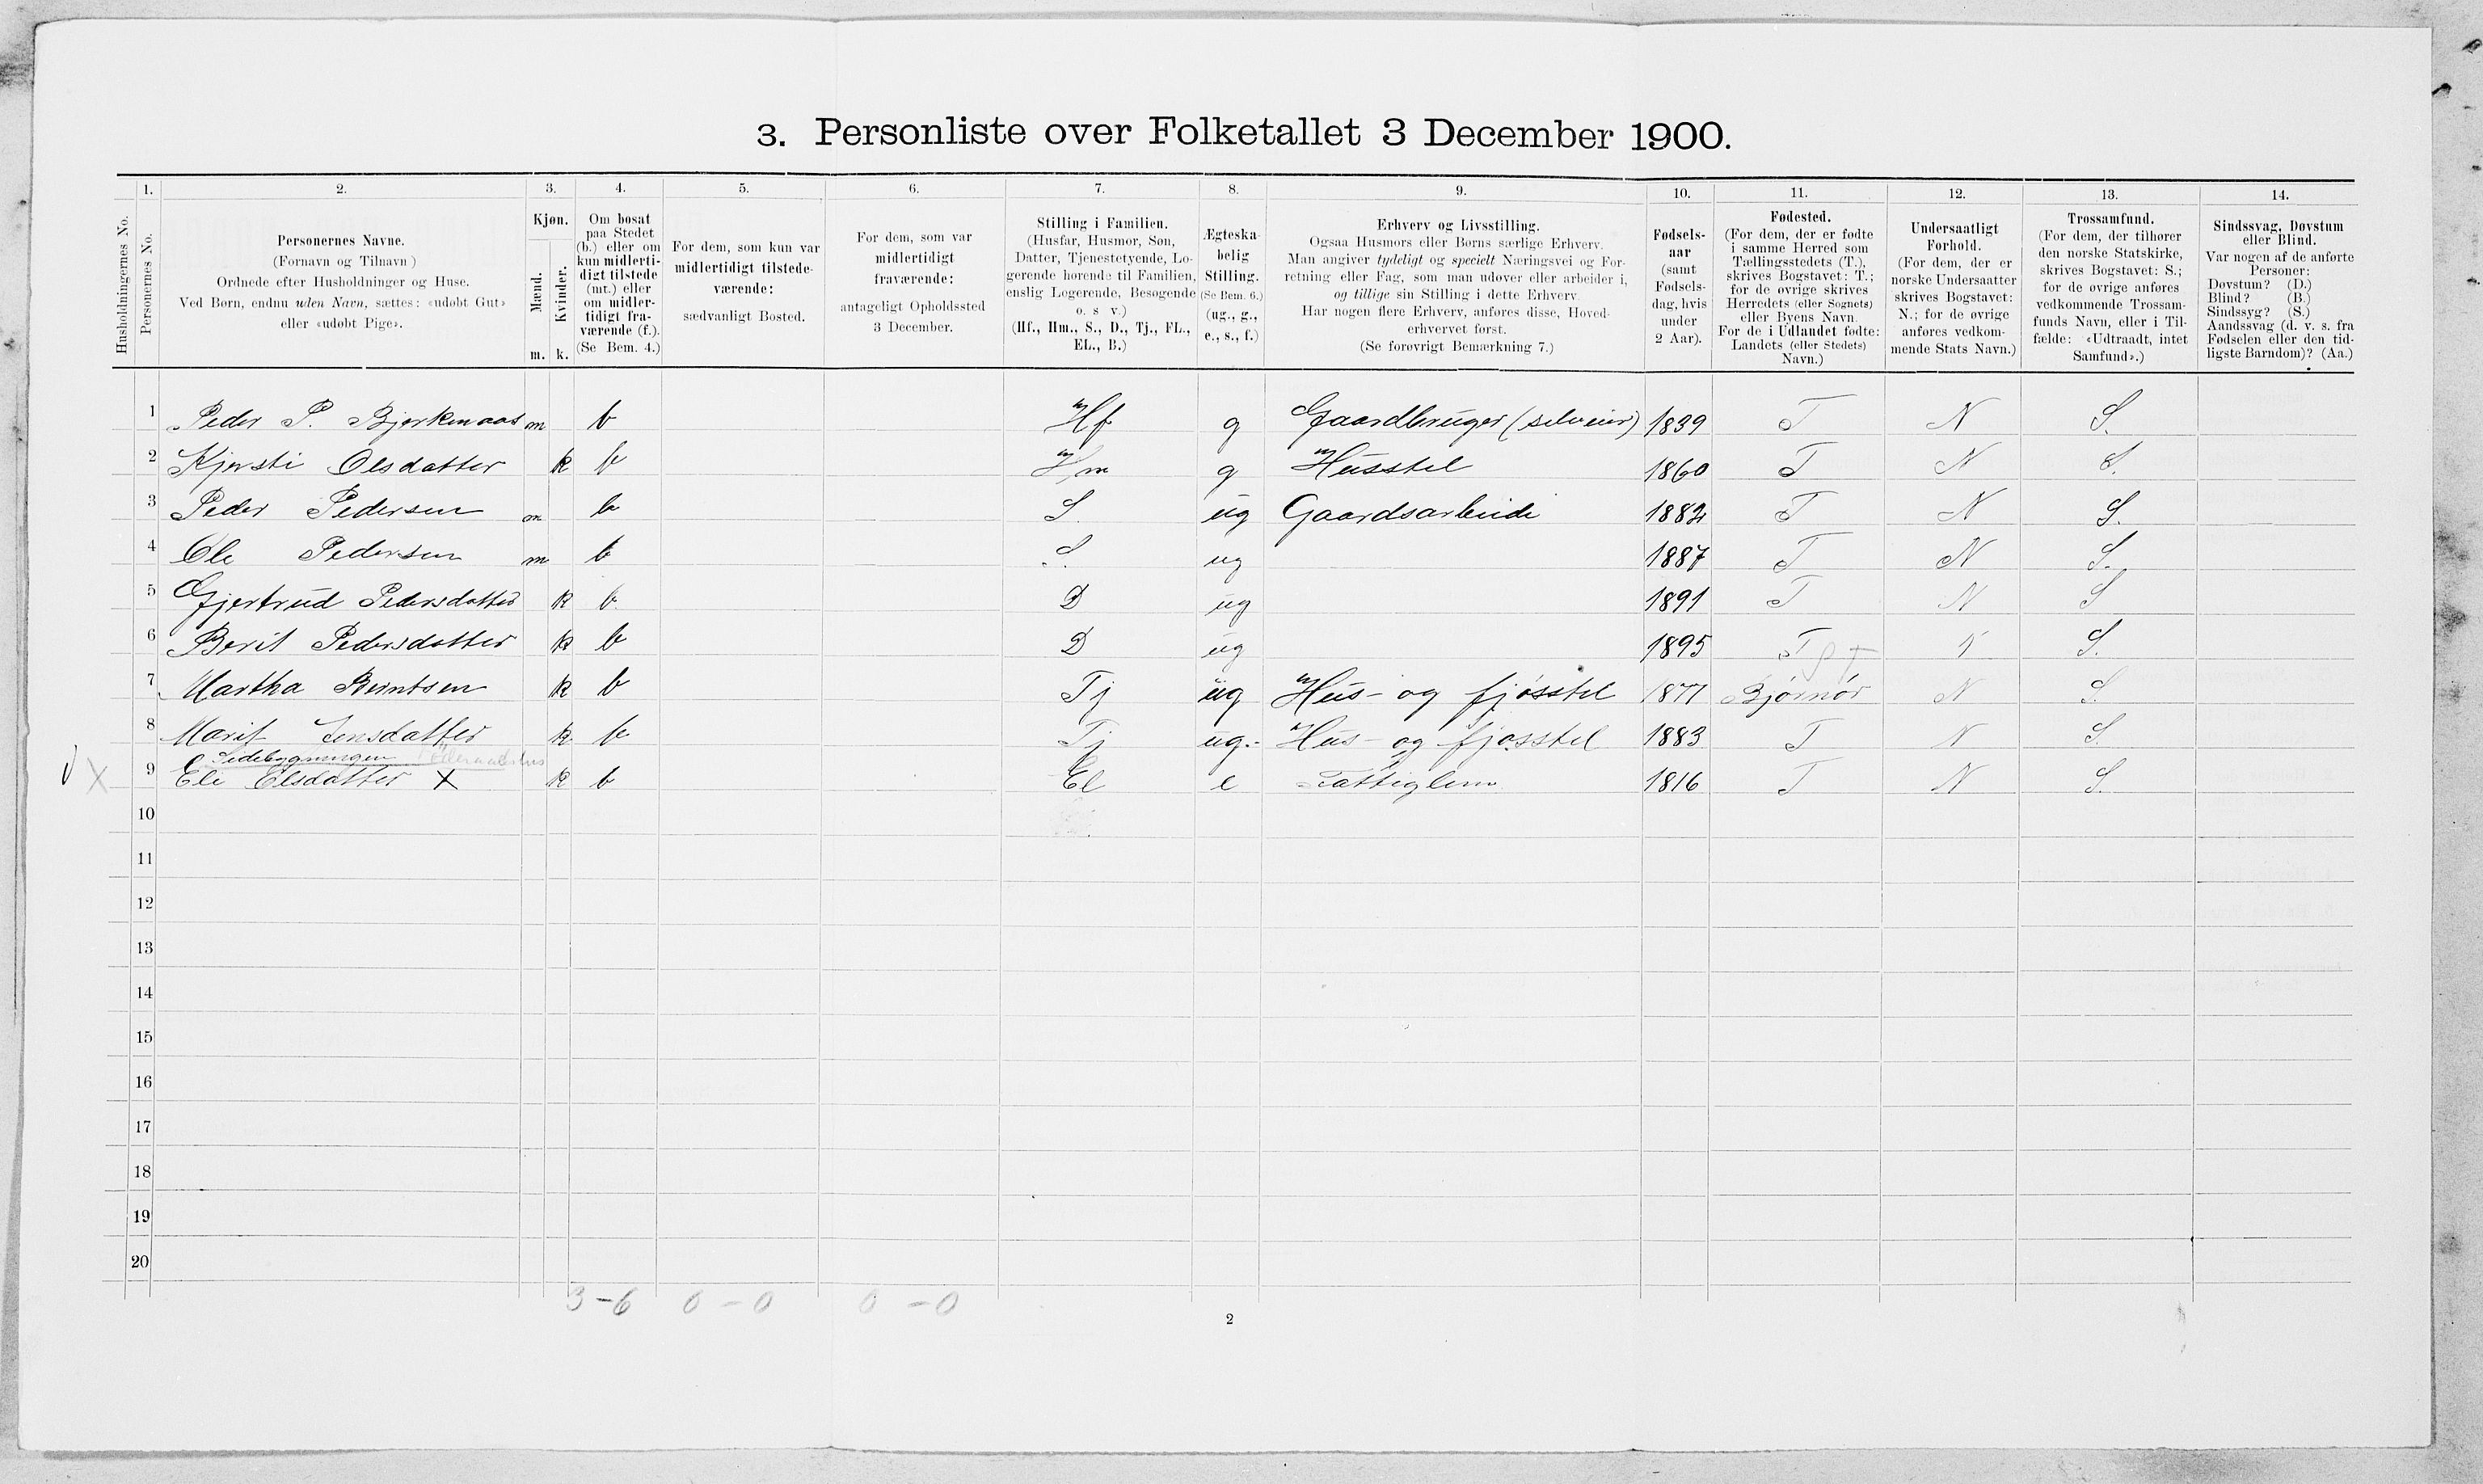 3. Personliste over Folketallet 3 December 1900.
1. 2. 3. 4. 5. 6. 7. 8. 9. 10. 11. 12. 13. 14.
Husholdningernes No.
Personernes No.
Personernes Navne.
(Fornavn og Tilnavn)
Ordnede efter Husholdninger og Huse.
Ved Børn, endnu uden Navn, sættes: «udøbt Gut»
eller «udøbt Pige».
Kjøn.
Mænd.
Kvinder.
m. k.
Om bosat
paa Stedet
(b.) eller om
kun midlerti-
digt tilstede
(mt.) eller
om midler-
tidigt fra-
værende (f.).
(Se Bem. 4.)
For dem, som kun var
midlertidigt tilstede-
værende:
sædvanligt Bosted.
For dem, som var
midlertidigt
fraværende:
antageligt Opholdssted
3 December.
Stilling i Familien.
(Husfar, Husmor, Søn,
Datter, Tjenestetyende, Lo-
gerende hørende til Familien,
enslig Logerende, Besøgende
o. s v.)
(Hf., Hm., S., D., Tj., FL.,
EL., B.)
Ægteska-
belig
Stilling.
(Se Bem. 6.)
(ug., g.,
e., s., f.)
Erhverv og Livsstilling.
Ogsaa Husmors eller Børns særlige Erhverv.
Man angiver tydeligt og specielt Næringsvei og For-
retning eller Fag, som man udøver eller arbeider i,
og tillige sin Stilling i dette Erhverv.
Har nogen flere Erhverv, anføres disse, Hoved-
erhvervet først.
(Se forøvrigt Bemærkning 7.)
Fødsels-
aar
(samt
Fødsels-
dag, hvis
under
2 Aar).
Fødested.
(For dem, der er fødte
i samme Herred som
Tællingsstedets (T.),
skrives Bogstavet: T.;
for de øvrige skrives
Herredets (eller Sognets)
eller Byens Navn.
For de i Udlandet fødte:
Landets (eller Stedets)
Navn.)
Undersaatligt
Forhold.
(For dem, der er
norske Undersaatter
skrives Bogstavet:
N.; for de øvrige
anføres vedkom-
mende Stats Navn.)
Trossamfund.
(For dem, der tilhører
den norske Statskirke,
skrives Bogstavet: S.;
for de øvrige anføres
vedkommende Trossam-
funds Navn, eller i Til-
fælde: «Udtraadt, intet
Samfund».)
Sindssvag, Døvstum
eller Blind.
Var nogen af de anførte
Personer:
Døvstum? (D.)
Blind? (B.)
Sindssyg? (S.)
Aandssvag (d. v. s. fra
Fødselen eller den tid-
ligste Barndom)? (Aa.)
1 Peder P. Bjerkenaas m b Hf g Gaardbruger (selveier) 1839 T N S.
2 Kjersti Olsdatter k b Hm g Husstel 1860 T N S.
3 Peder Pedersen m b S. ug Gaardsarbeide 1882 T N S.
4 Ole Pedersen m b S. ug 1887 T N S.
5 Gjertrud Pedersdatter k b. D ug 1891 T N S
6 Berit Pedersdatter k b D ug 1895 T N S.
7 Martha Berntsen k b Tj ug Hus- og fjøsstel 1877 Bjørnør N S.
8 Marit Jensdatter k b Tj ug. Hus- og fjøsstel 1883 T N S.
Sidebygningen
X 9 Eli Olsdatter X k b El e Fattiglem 1816 T N S.
10
11
12
13
14
15
16
17
18
19
20
3-6 0-0 0-0
2